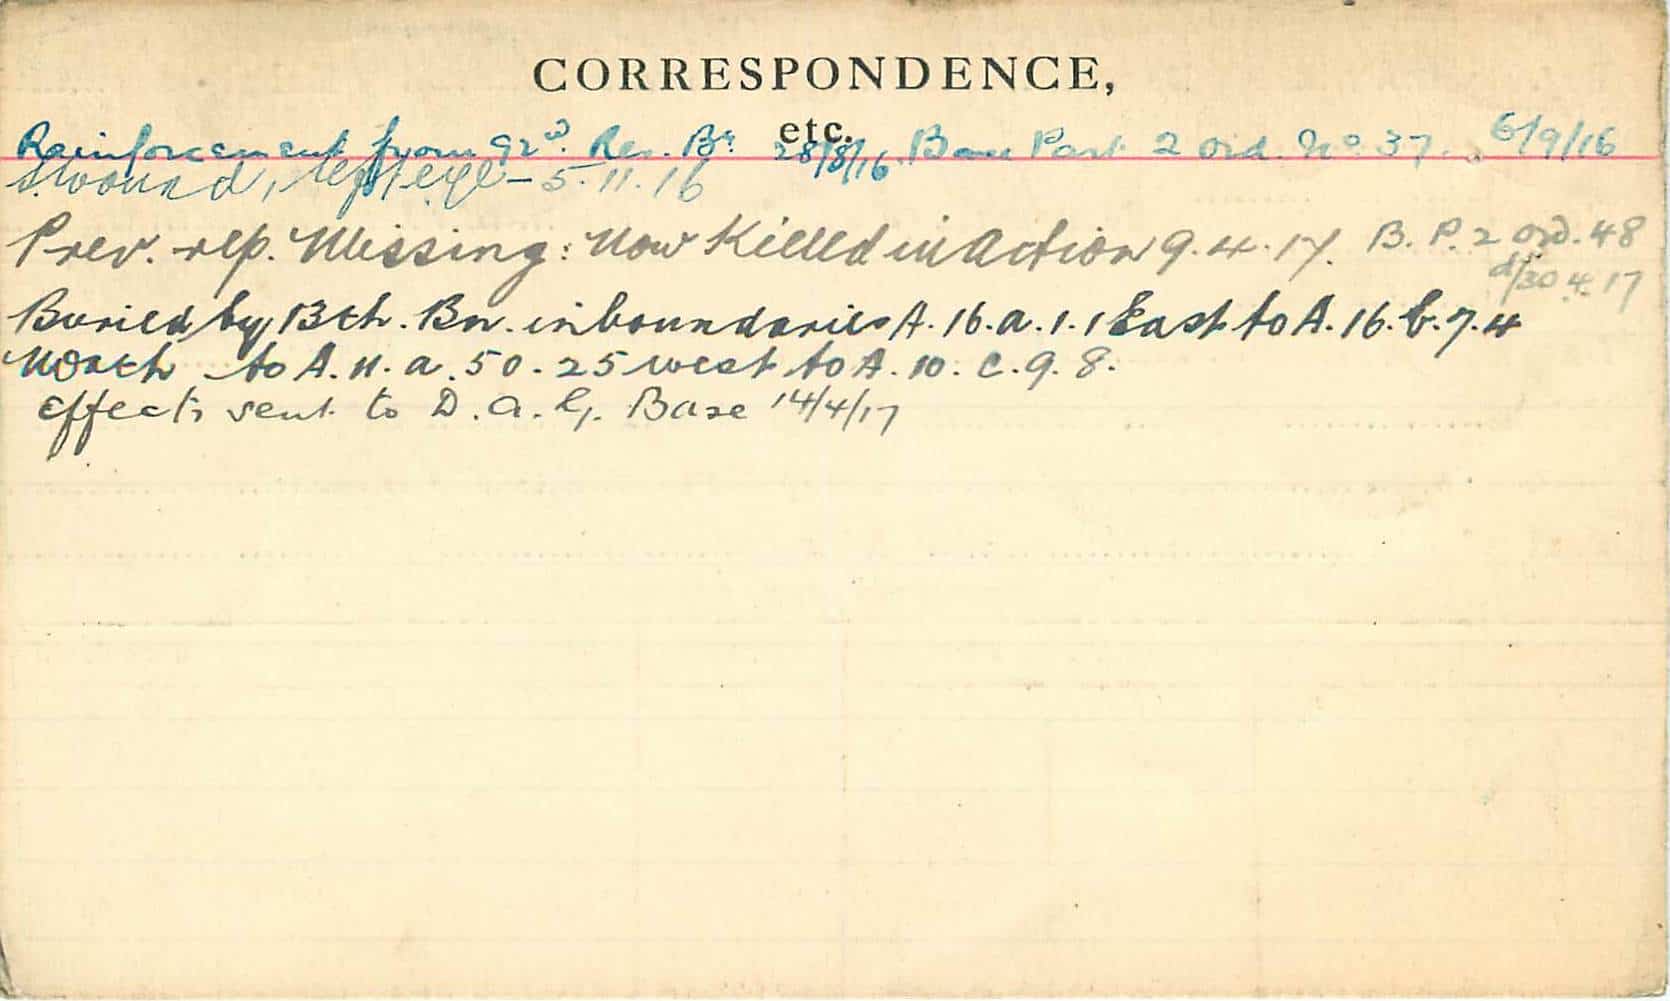 CORRESPONDENCE,
etc.
Reinforcement from 92nd. Res. Bn 28/8/16. Base Part 2 Ord. No 37. 6/9/16
S. wound, left eye - 5.11.16
Prev. rep. Missing: Now Killed in Action 9.4.17. B. P. 2 Ord. 48
d/30.4.17
Buried by 13th. Bn. in boundaries A. 16. a. 1. 1 East to A. 16. b. 7. 4
North to A. 11. a. 50. 25 west to A. 10. c. 9. 8.
Effects sent to D. A. G. Base 14/4/17